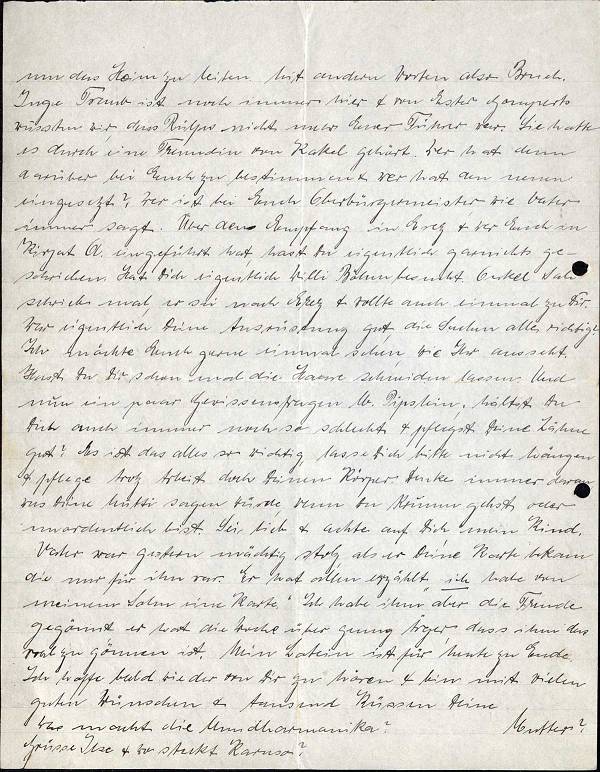 um das Heim zu leiten. Mit andern Worten also Bruch.
Inge Traub ist noch immer hier & von Ester Gomperts
wussten wir, dass nicht mehr Euer Führer war. Sie hatte
es durch eine Freundin von Rakel gehört. Wer hat denn
darüber bei Euch zu bestimmen & wer hat den neuen
eingesetzt?, wer ist bei Euch Oberbürgermeister wie Vater
immer sagt. Über den Empfang in Erez & wer Euch in
Kirjat A. eingeführt hat hast Du eigentlich garnichts ge-
schrieben. Hat Dich eigentlich Willi Böhm besucht. Onkel
schrieb mal, er sei nach Erez & wollte auch einmal zu Dir.
War eigentlich Deine Ausrüstung gut, die Sachen alle richtig?
Ich möchte Euch gerne einmal sehen, wie Ihr ausseht.
Hast Du Dir schon mal die Haare schneiden lassen. Und
nun ein paar Gewissensfragen Pipstein, hältst Du
Dich auch immer noch so schlecht & pflegst Deine Zähne
gut? Es ist das alles so wichtig, lasse Dich bitte nicht hängen
& pflege trotz Arbeit doch Deinen Körper. Denke immer daran
was Deine Mutti sagen würde, wenn Du krumm gehst oder
unordentlich bist. Sei lieb & achte auf Dich mein Kind.
Vater war gestern mächtig stolz, als er Deine Karte bekam
die nur für ihn war. Er hat allen erzählt, „ich habe von
meinem Sohn eine Karte." Ich habe ihm aber die Freude
gegönnt er hat die Woche über genug Ärger, dass ihm das
mal zu gönnen ist. Mein Latein ist für heute zu Ende.
Ich hoffe bald wieder von Dir zu hören & bin mit vielen
guten Wünschen & tausend Küssen Deine
Was macht die Mundharmonika? Mutter.
Grüsse Ilse & wo steckt Karuso?